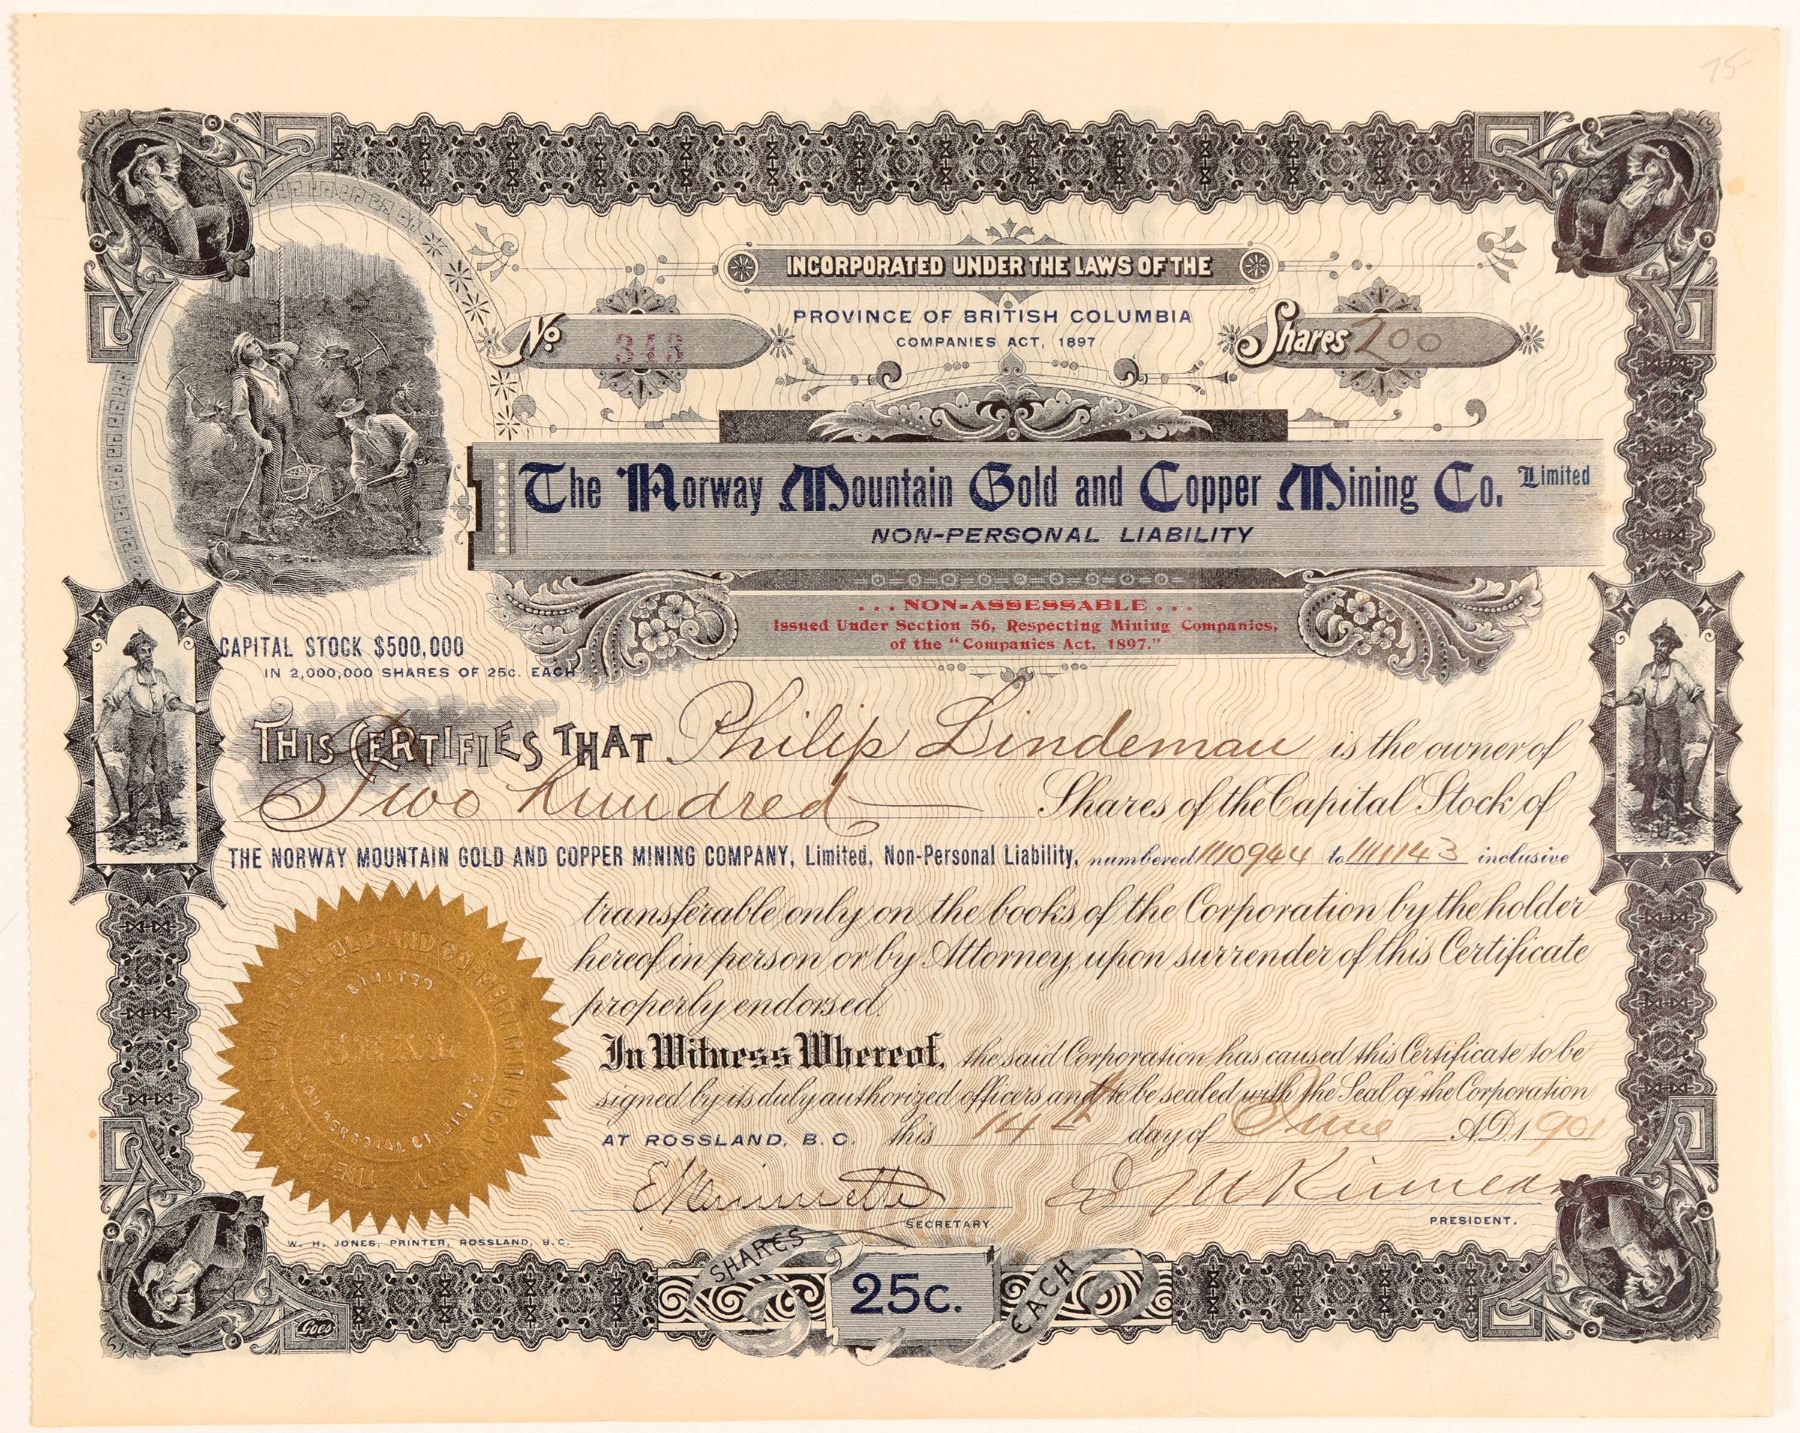 75-
INCORPORATED UNDER THE LAWS OF THE
PROVINCE OF BRITISH COLUMBIA
COMPANIES ACT, 1897
No. 343
Shares 200
The Norway Mountain Gold and Copper Mining Co. Limited
NON-PERSONAL LIABILITY
...NON-ASSESSABLE...
Issued Under Section 56, Respecting Mining Companies,
of the "Companies Act, 1897."
CAPITAL STOCK $500,000
IN 2,000,000 SHARES OF 25c. EACH
THIS CERTIFIES THAT Philip Lindeman is the owner of
Two hundred Shares of the Capital Stock of
THE NORWAY MOUNTAIN GOLD AND COPPER MINING COMPANY, Limited, Non-Personal Liability, numbered 1110944 to 1111143 inclusive
transferable only on the books of the Corporation by the holder
hereof in person or by Attorney, upon surrender of this Certificate
properly endorsed.
In Witness Whereof, the said Corporation has caused this Certificate to be
signed by its duly authorized officers and to be sealed with the Seal of the Corporation
AT ROSSLAND, B.C. this 14th day of June A.D. 1901
SECRETARY
PRESIDENT.
W. H. JONES, PRINTER, ROSSLAND, B.C.
LIMITED
NON-PERSONAL LIABILITY
SHARES 25c. EACH
Goes